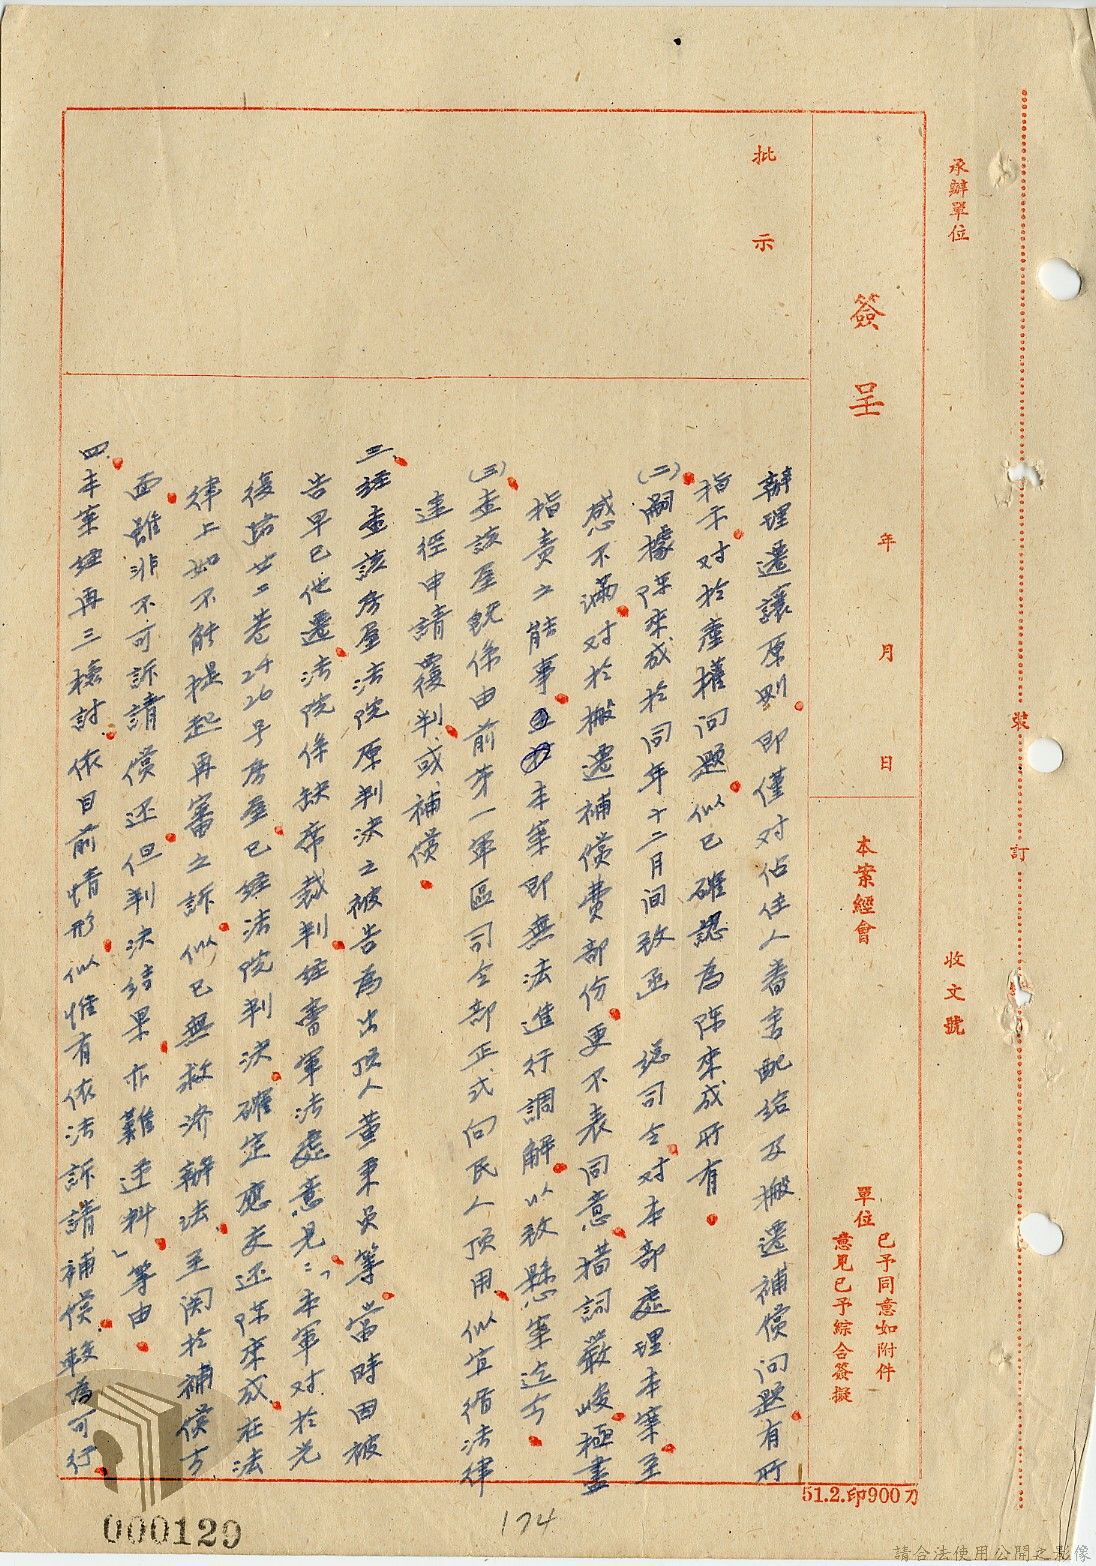 承辦單位
收文號
裝
訂
線
簽呈
年 月 日
本案經會
單位
已予同意如附件
意見已予綜合簽擬
批示
辦理遷讓原則即僅对佔住人眷舍配給及搬遷補償问題有所
指示对於產權问題似已確認為陈來成所有
(二)嗣據陈來成於同年十二月间致函 总司令对本部處理本案至
感不滿对於搬遷補償費部份更不表同意措詞嚴峻極盡
指責之能事本案即無法進行調解以致懸案迄今
(三)查該屋既係由前第一軍區司令部正式向民人頂用似宜循法律
途徑申請覆判或補償
三、經查該房屋法院原判決之被告為出頂人董秉 等當時因被
告早已他遷法院係缺席裁判經會軍法處意見:「本軍对於光
復路廿二巷2426号房屋已經法院判決確定應交还陈來成在法
律上如不能提起再審之訴似已無救济辦法至関於補償方
面雖非不可訴請償还但判決結果亦難逆料」等由
四、本案經再三檢討依目前情形似惟有依法訴請補償較為可行
51.2.印900刀
174
000129
請合法使用公開之影像